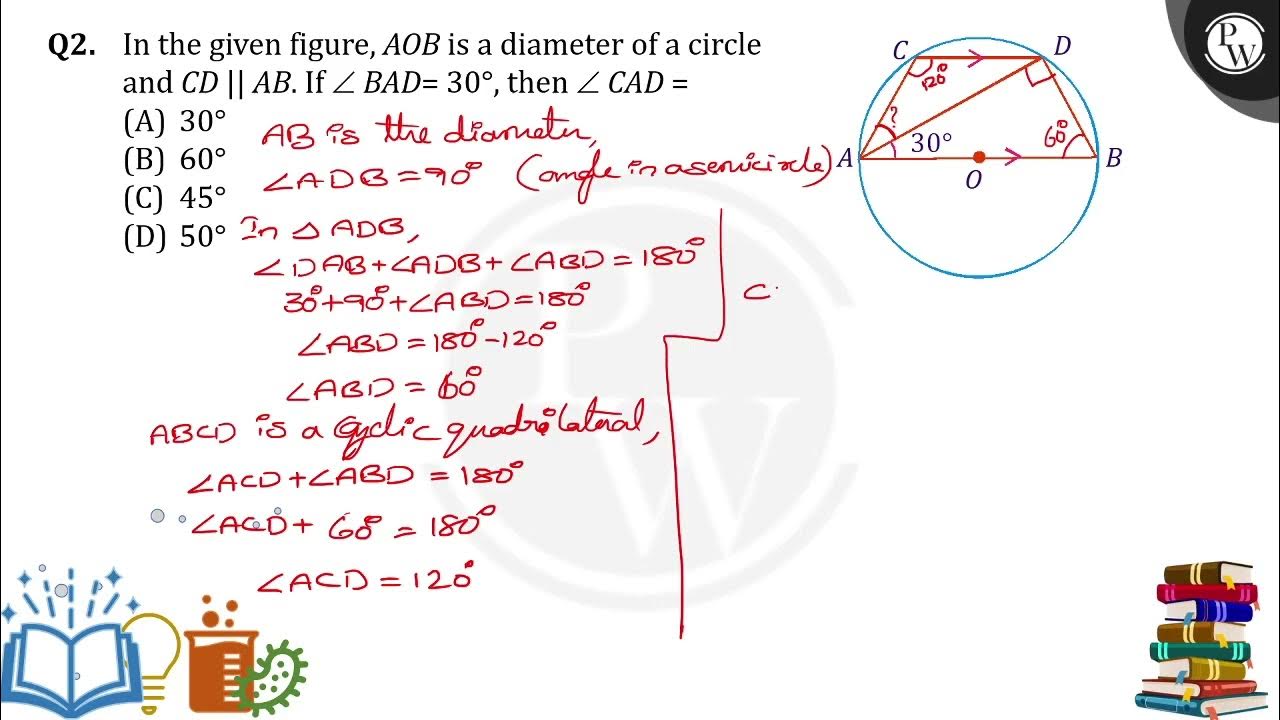 Q2. In the given figure, AOB is a diameter of a circle
and CD || AB. If ∠ BAD= 30°, then ∠ CAD =
(A) 30°
(B) 60°
(C) 45°
(D) 50°
AB is the diameter,
∠ADB = 90° (angle in a semicircle)
In △ ADB,
∠DAB + ∠ADB + ∠ABD = 180°
30° + 90° + ∠ABD = 180°
∠ABD = 180° - 120°
∠ABD = 60°
ABCD is a cyclic quadrilateral,
∠ACD + ∠ABD = 180°
∠ACD + 60° = 180°
∠ACD = 120°
C
C
D
120°
?
30°
60°
A
B
O
P
W
P
W